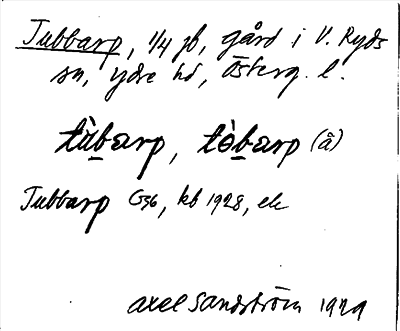 Tubbarp, 1/4 jb, gård i V. Ryds
sn, ydre hd, Österg. l.
tùbarp, tòbarp (å)
Tubbarp G36, kb 1928, ek
Axel Sandström 1929